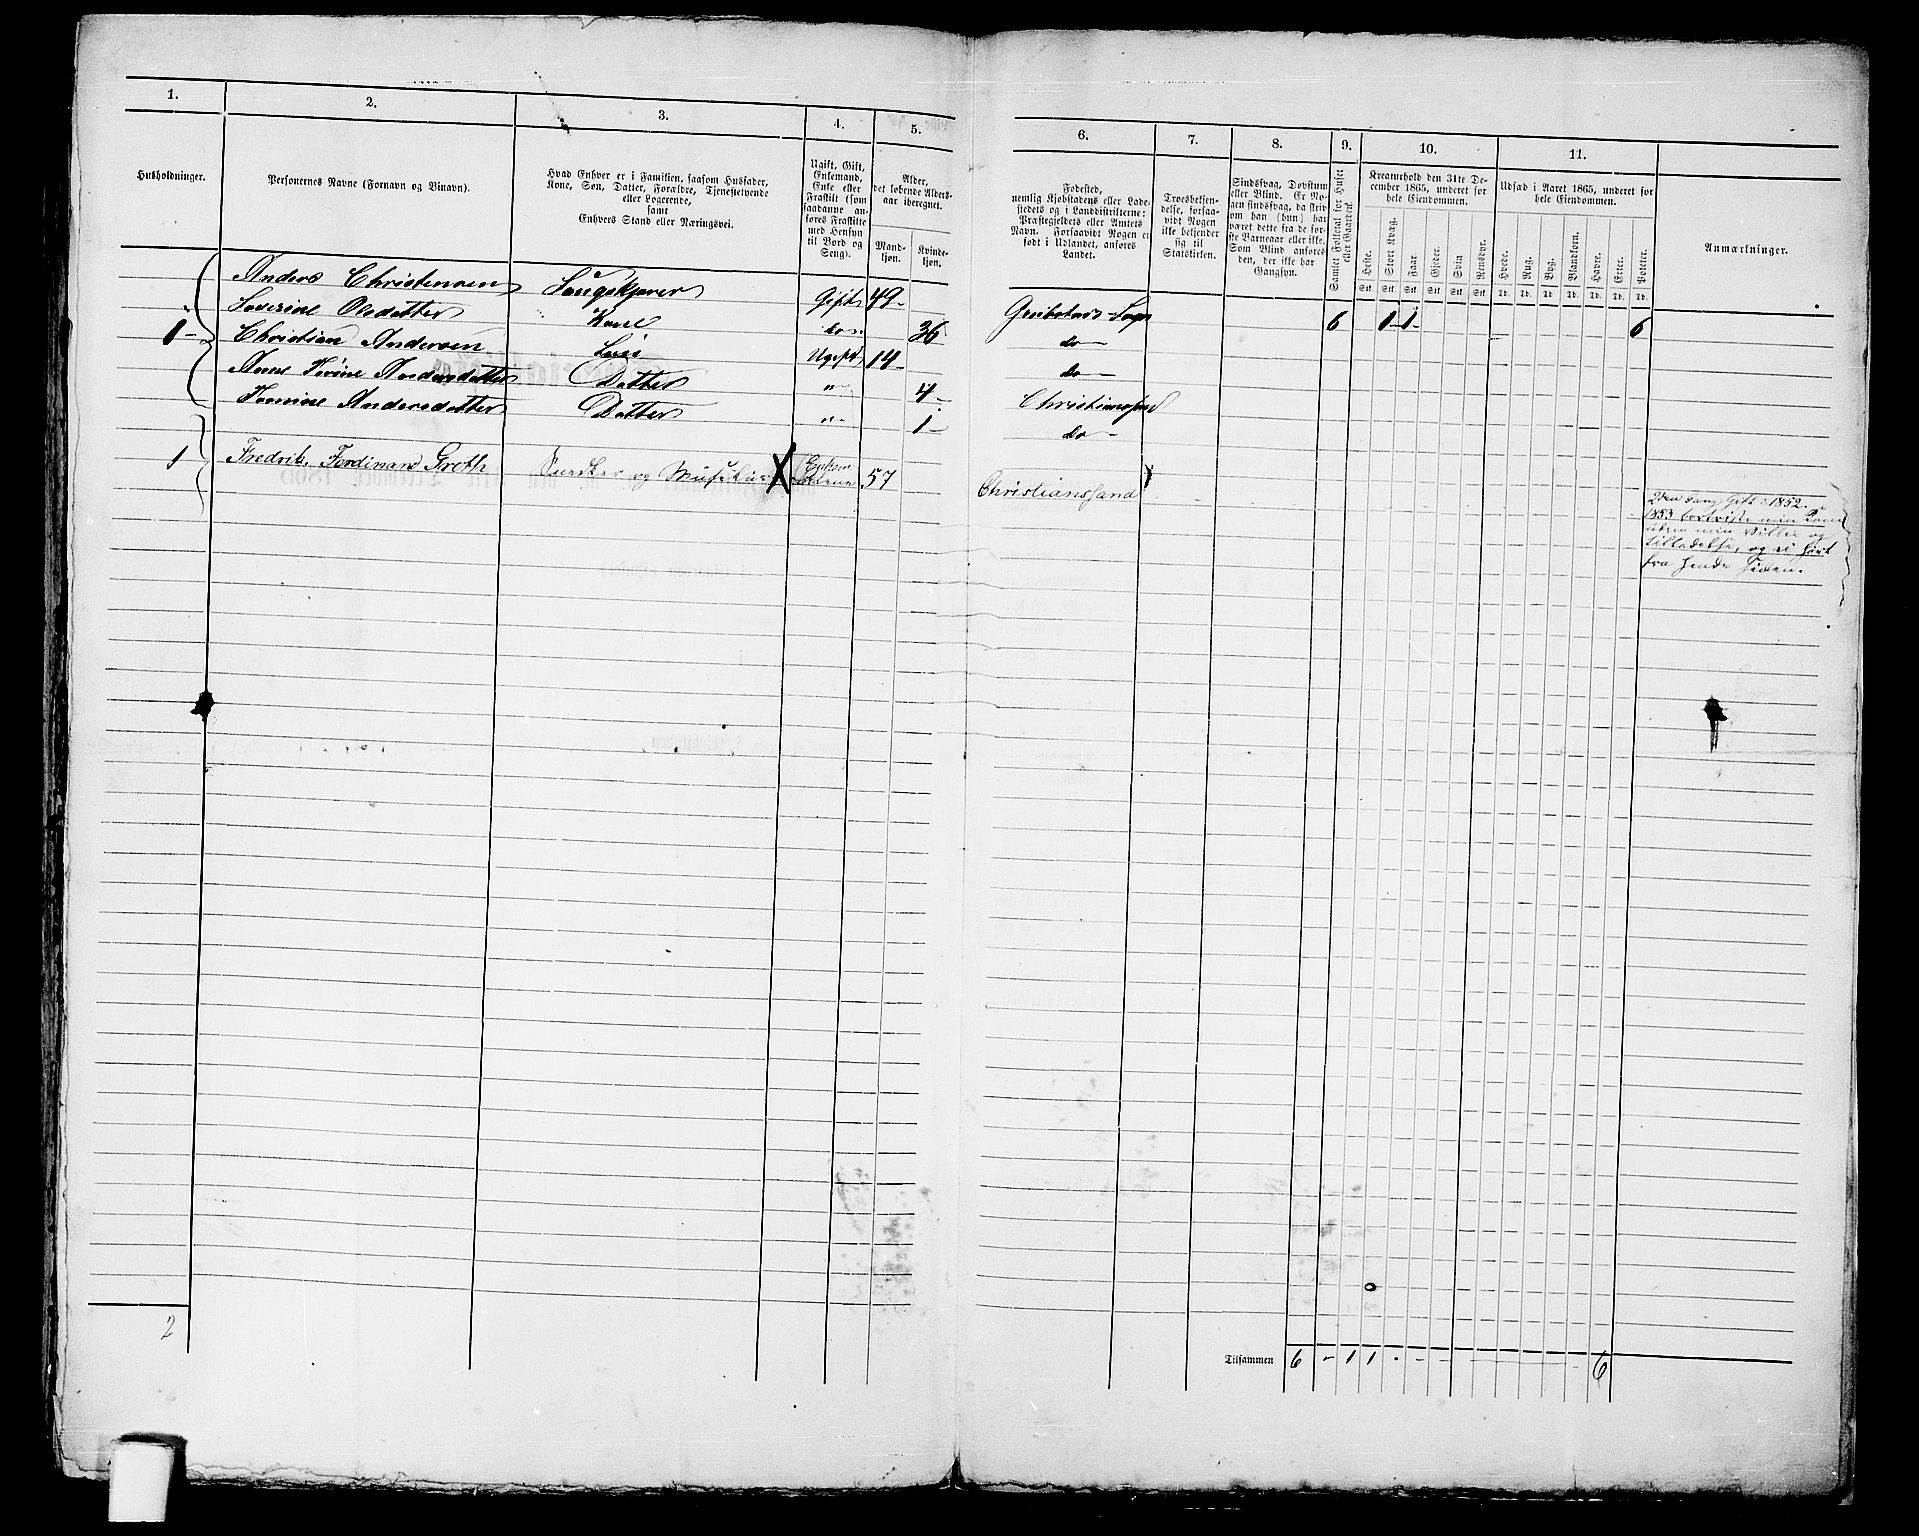 1.
2.
3.
4.
5.
6.
7.
8.
9.
10.
11.
Husholdninger.
Personernes Navne (Fornavn og Binavn).
Hvad Enhver er i Familien, saasom Husfader,
Kone, Søn, Datter, Forældre, Tjenestetyende
eller Logerende,
samt
Enhvers Stand eller Næringsvei.
Ugift, Gift,
Enkemand,
Enke eller
Fraskilt (som
saadanne an-
føres Fraskilte
med Hensyn
til Bord og
Seng).
Alder,
det løbende Alders-
aar iberegnet.
Mand-
kjøn.
Kvinde-
kjøn.
Fødested,
nemlig Kjøbstadens eller Lade-
stedets og i Landdistrikterne:
Præstegjeldets eller Amtets
Navn. Forsaavidt Nogen er
født i Udlandet, anføres
Landet.
Troesbekjen-
delse, forsaa-
vidt Nogen
ikke bekjender
sig til
Statskirken.
Sindssvag, Døvstum
eller Blind. Er No-
gen sindssvag, da skriv
om han (hun) har
været dette fra de før-
ste Barneaar eller ikke.
Som Blind anføres
den, der ikke har
Gangsyn.
Samlet Folketal for Huset
eller Gaarden.
Kreaturhold den 31te De-
cember 1865, underet for
hele Eiendommen.
Heste.
Stort Kvæg.
Faar.
Gjeder.
Svin
Rensdyr.
Udsæd i Aaret 1865, underet for
hele Eiendommen.
Hvede.
Rug.
Byg.
Blandkorn.
Havre.
Erter.
Poteter.
Stk. Stk. Stk. Stk. Stk. Stk. Td. Td. Td. Td. Td. Td. Td.
Anmærkninger.
Anders Christensen Saugskjærer Gift 49 - Greibstads Sogn 6 1 - 1 - 6
Severine Olsdatter Kone do 36 do -
1 - Christian Andersen Søn Ugift 14 - do -
Anne Andersdatter Datter " 4 - Christianssand
Andersdatter Datter " - 1 - do -
1 Fredrik Ferdinan Groth Snedker og X 57 Christianssand
2den Gang Gift 1852.
1853 min Kone
uden min Villie og
Tilladelse, og ei hørt
fra Hende siden.
2
Tilsammen 6 - 1 1 - - - 6